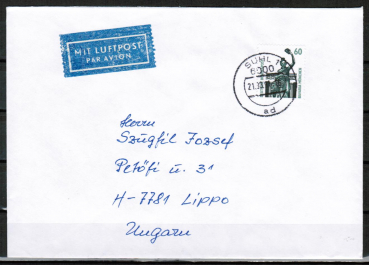 MIT LUFTPOST
PAR AVION
SUHL 1
6000
ad
60
Herrn
Szugfil Jozsef
Petőfi u. 31
H-7781 Lippo
Ungarn